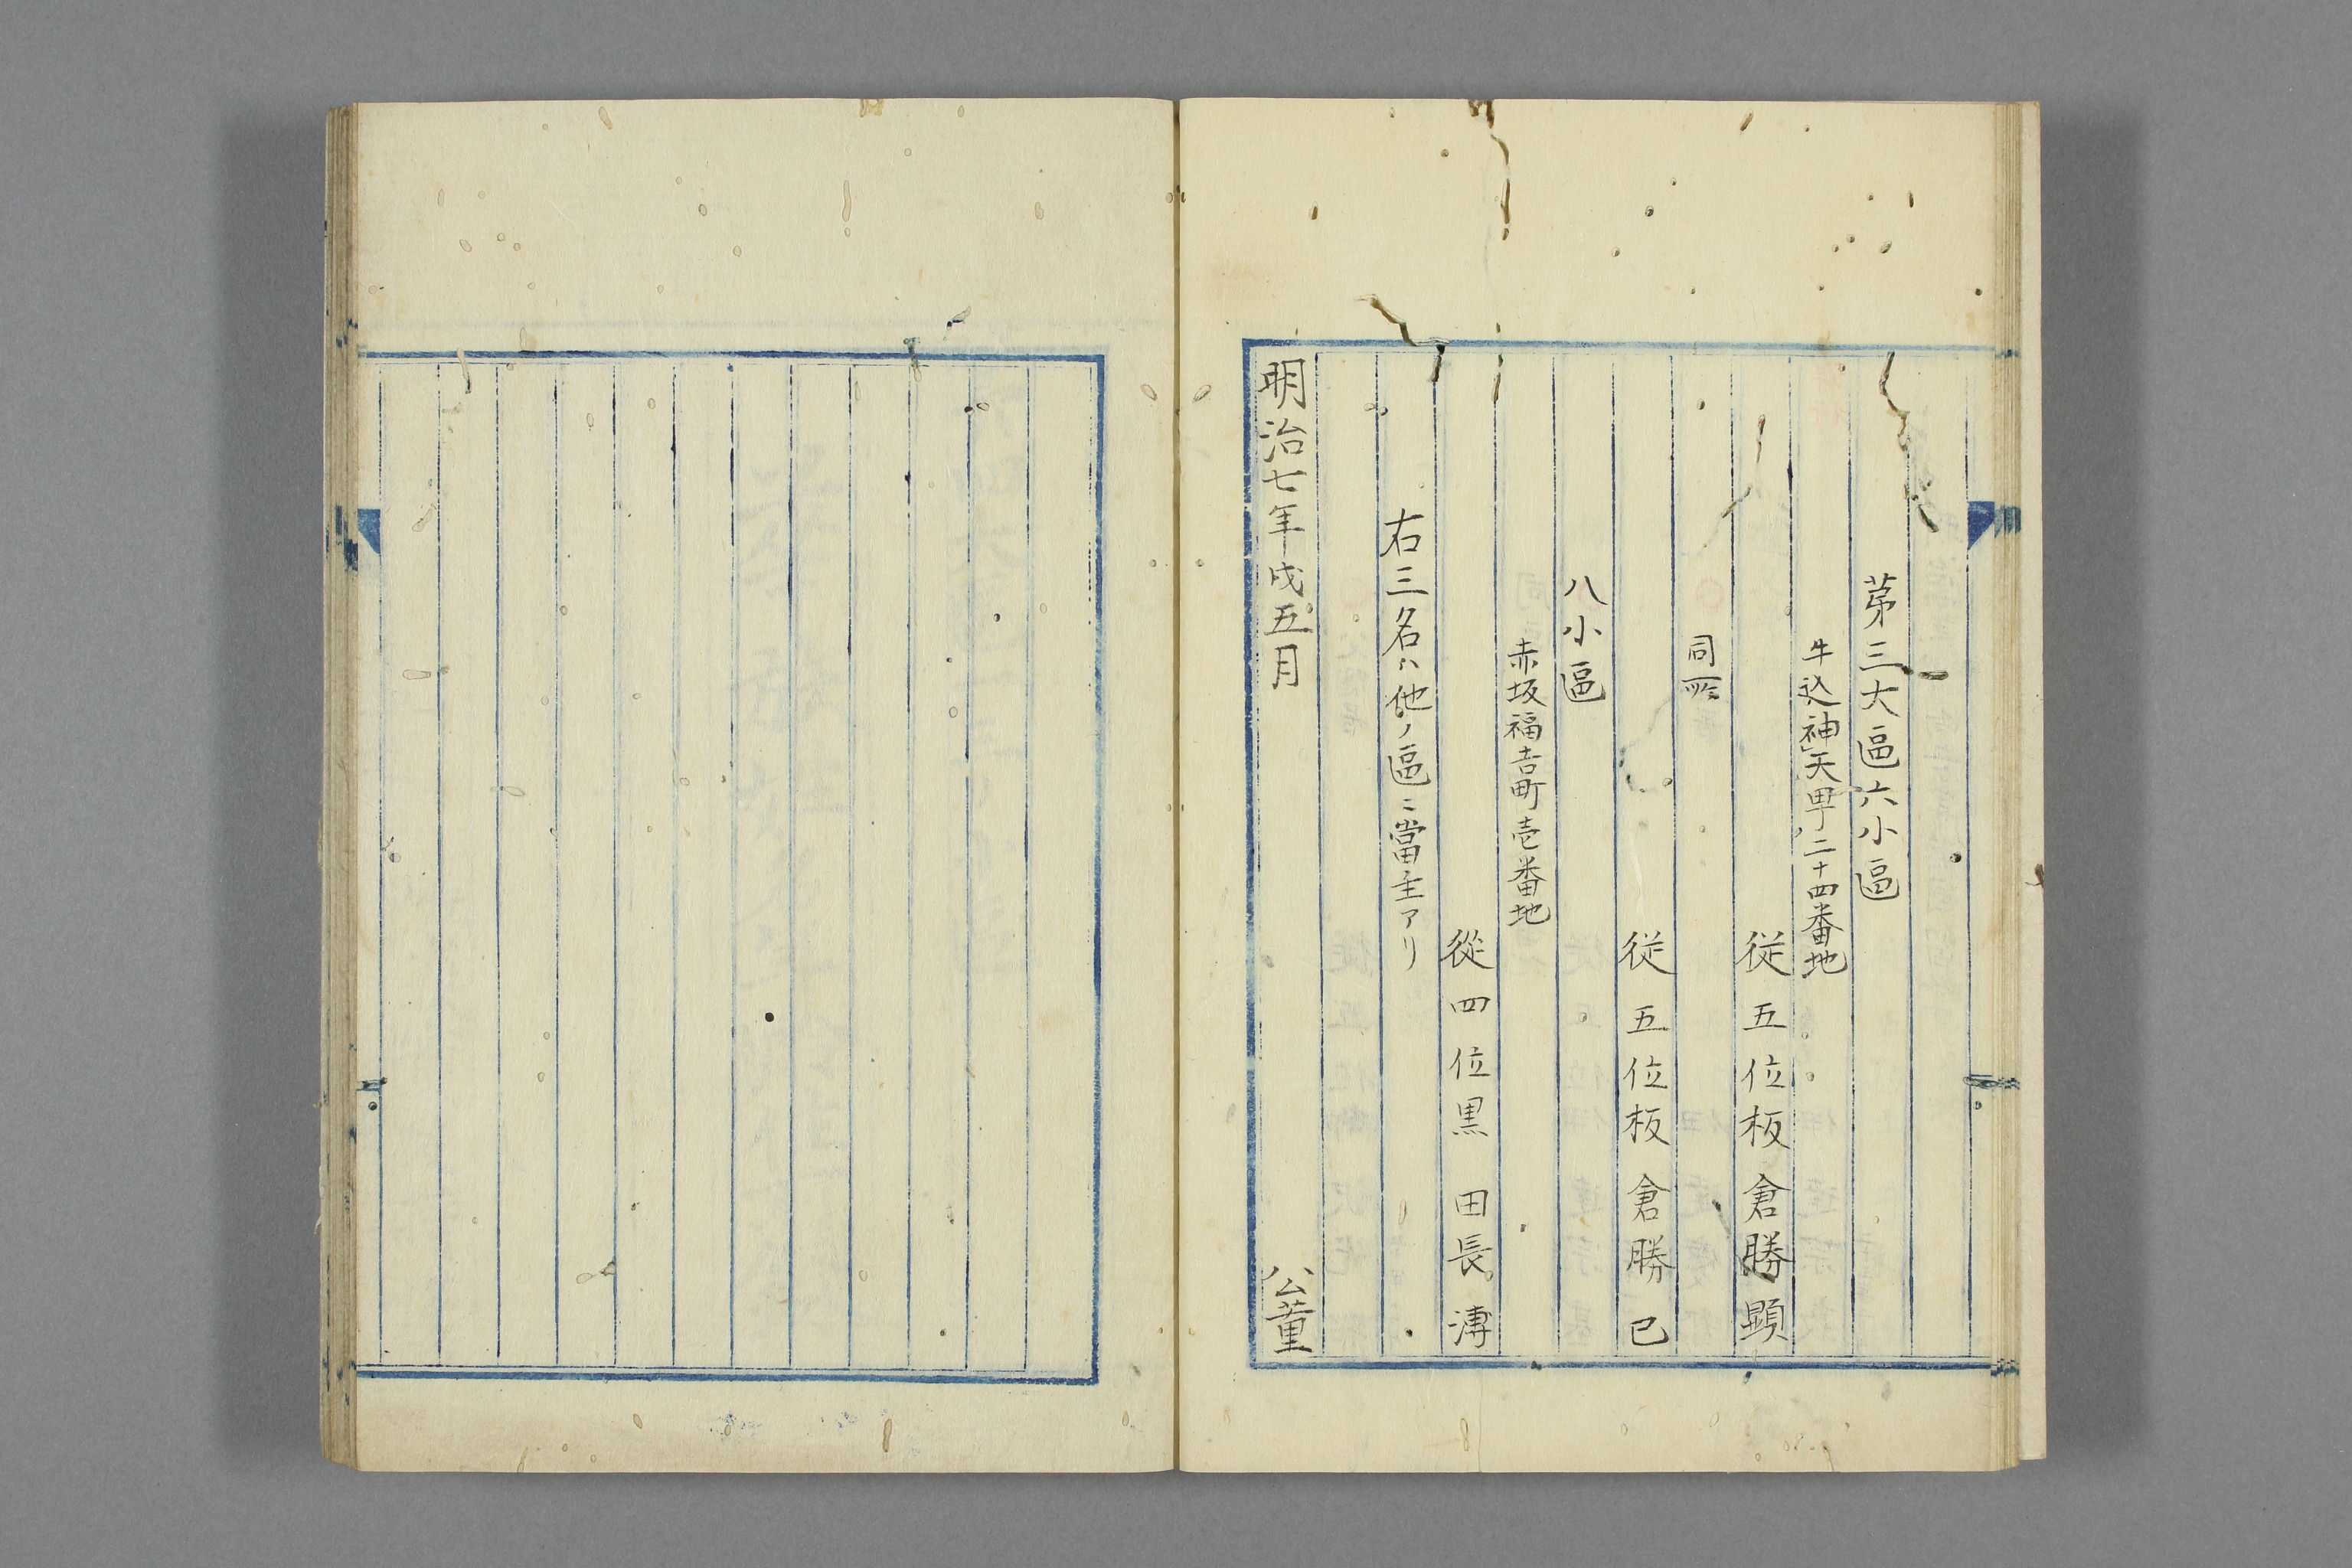 第三大區六小區
牛込神天町二十四番地
従五位板倉勝顕
同所
従五位板倉勝已
八小區
赤坂福吉町壱番地
從四位黒田長溥
右三名ハ他ノ區ニ當主アリ
明治七年戌五月
公董